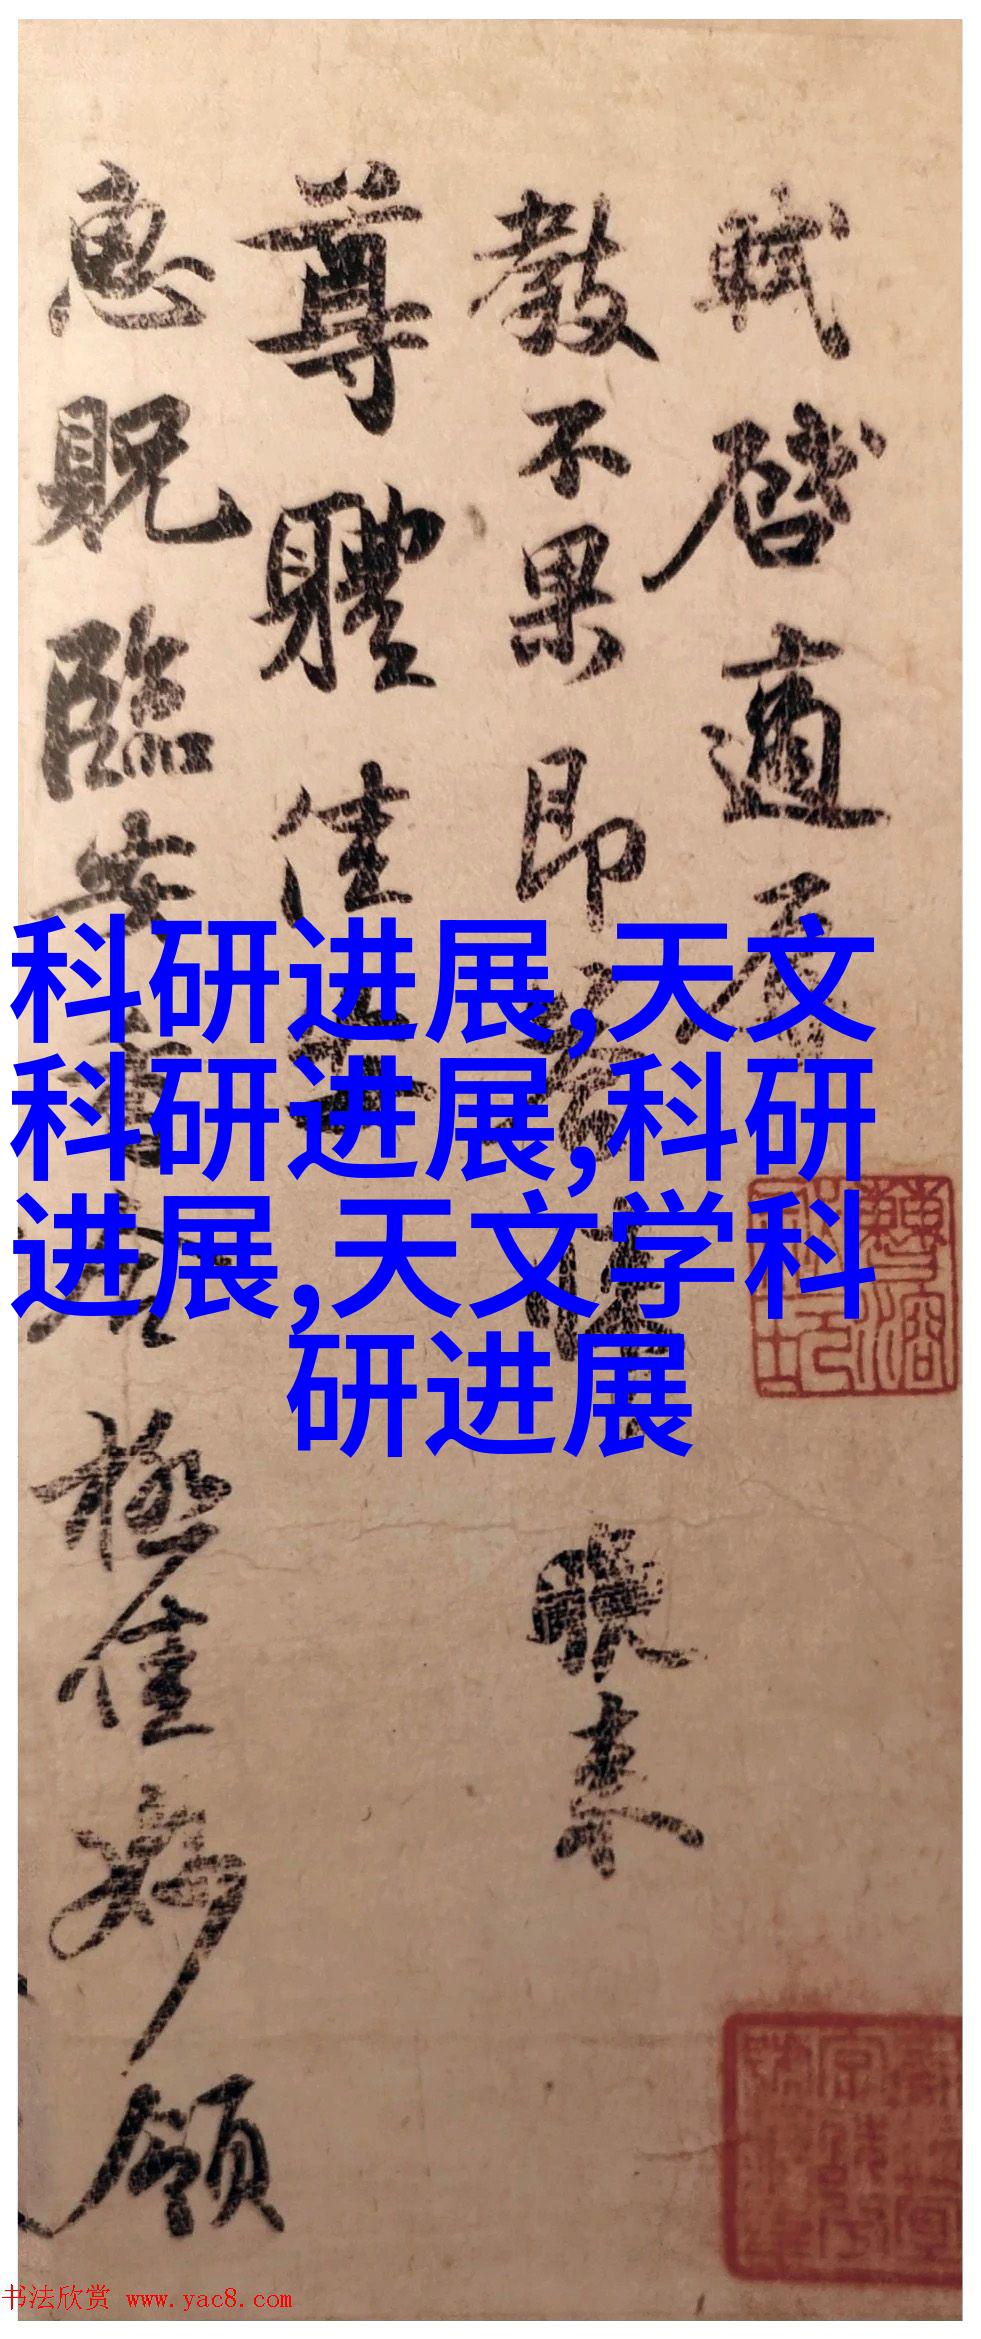 軾啓適辱
教不果即答 晚来
尊體佳安
惠貺臨安香合極佳妙領
科研进展,天文
科研进展,科研
进展,天文学科
研进展
书法欣赏 www.yac8.com